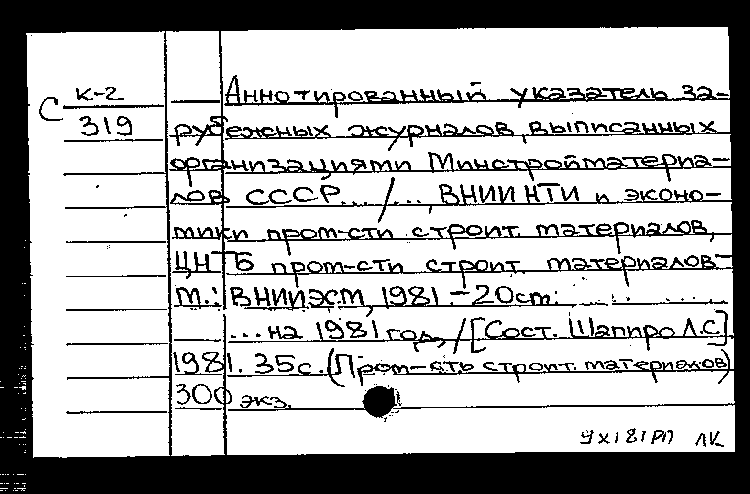 С К-2
319
Аннотированный указатель за-
рубежных журналов, выписанных
организациями Минстройматериа-
лов СССР... /..., ВНИИНТИ и эконо-
мики пром-сти строит. материалов,
ЦНТБ пром-сти строит. материалов-
М.: ВНИИЭСМ, 1981 - 20см.
...на 1981 год, /[Сост. Шапиро Л.С]
1981. 35с. (Пром-сть строит. материалов)
300 экз.
9 XI 81 РП ЛК